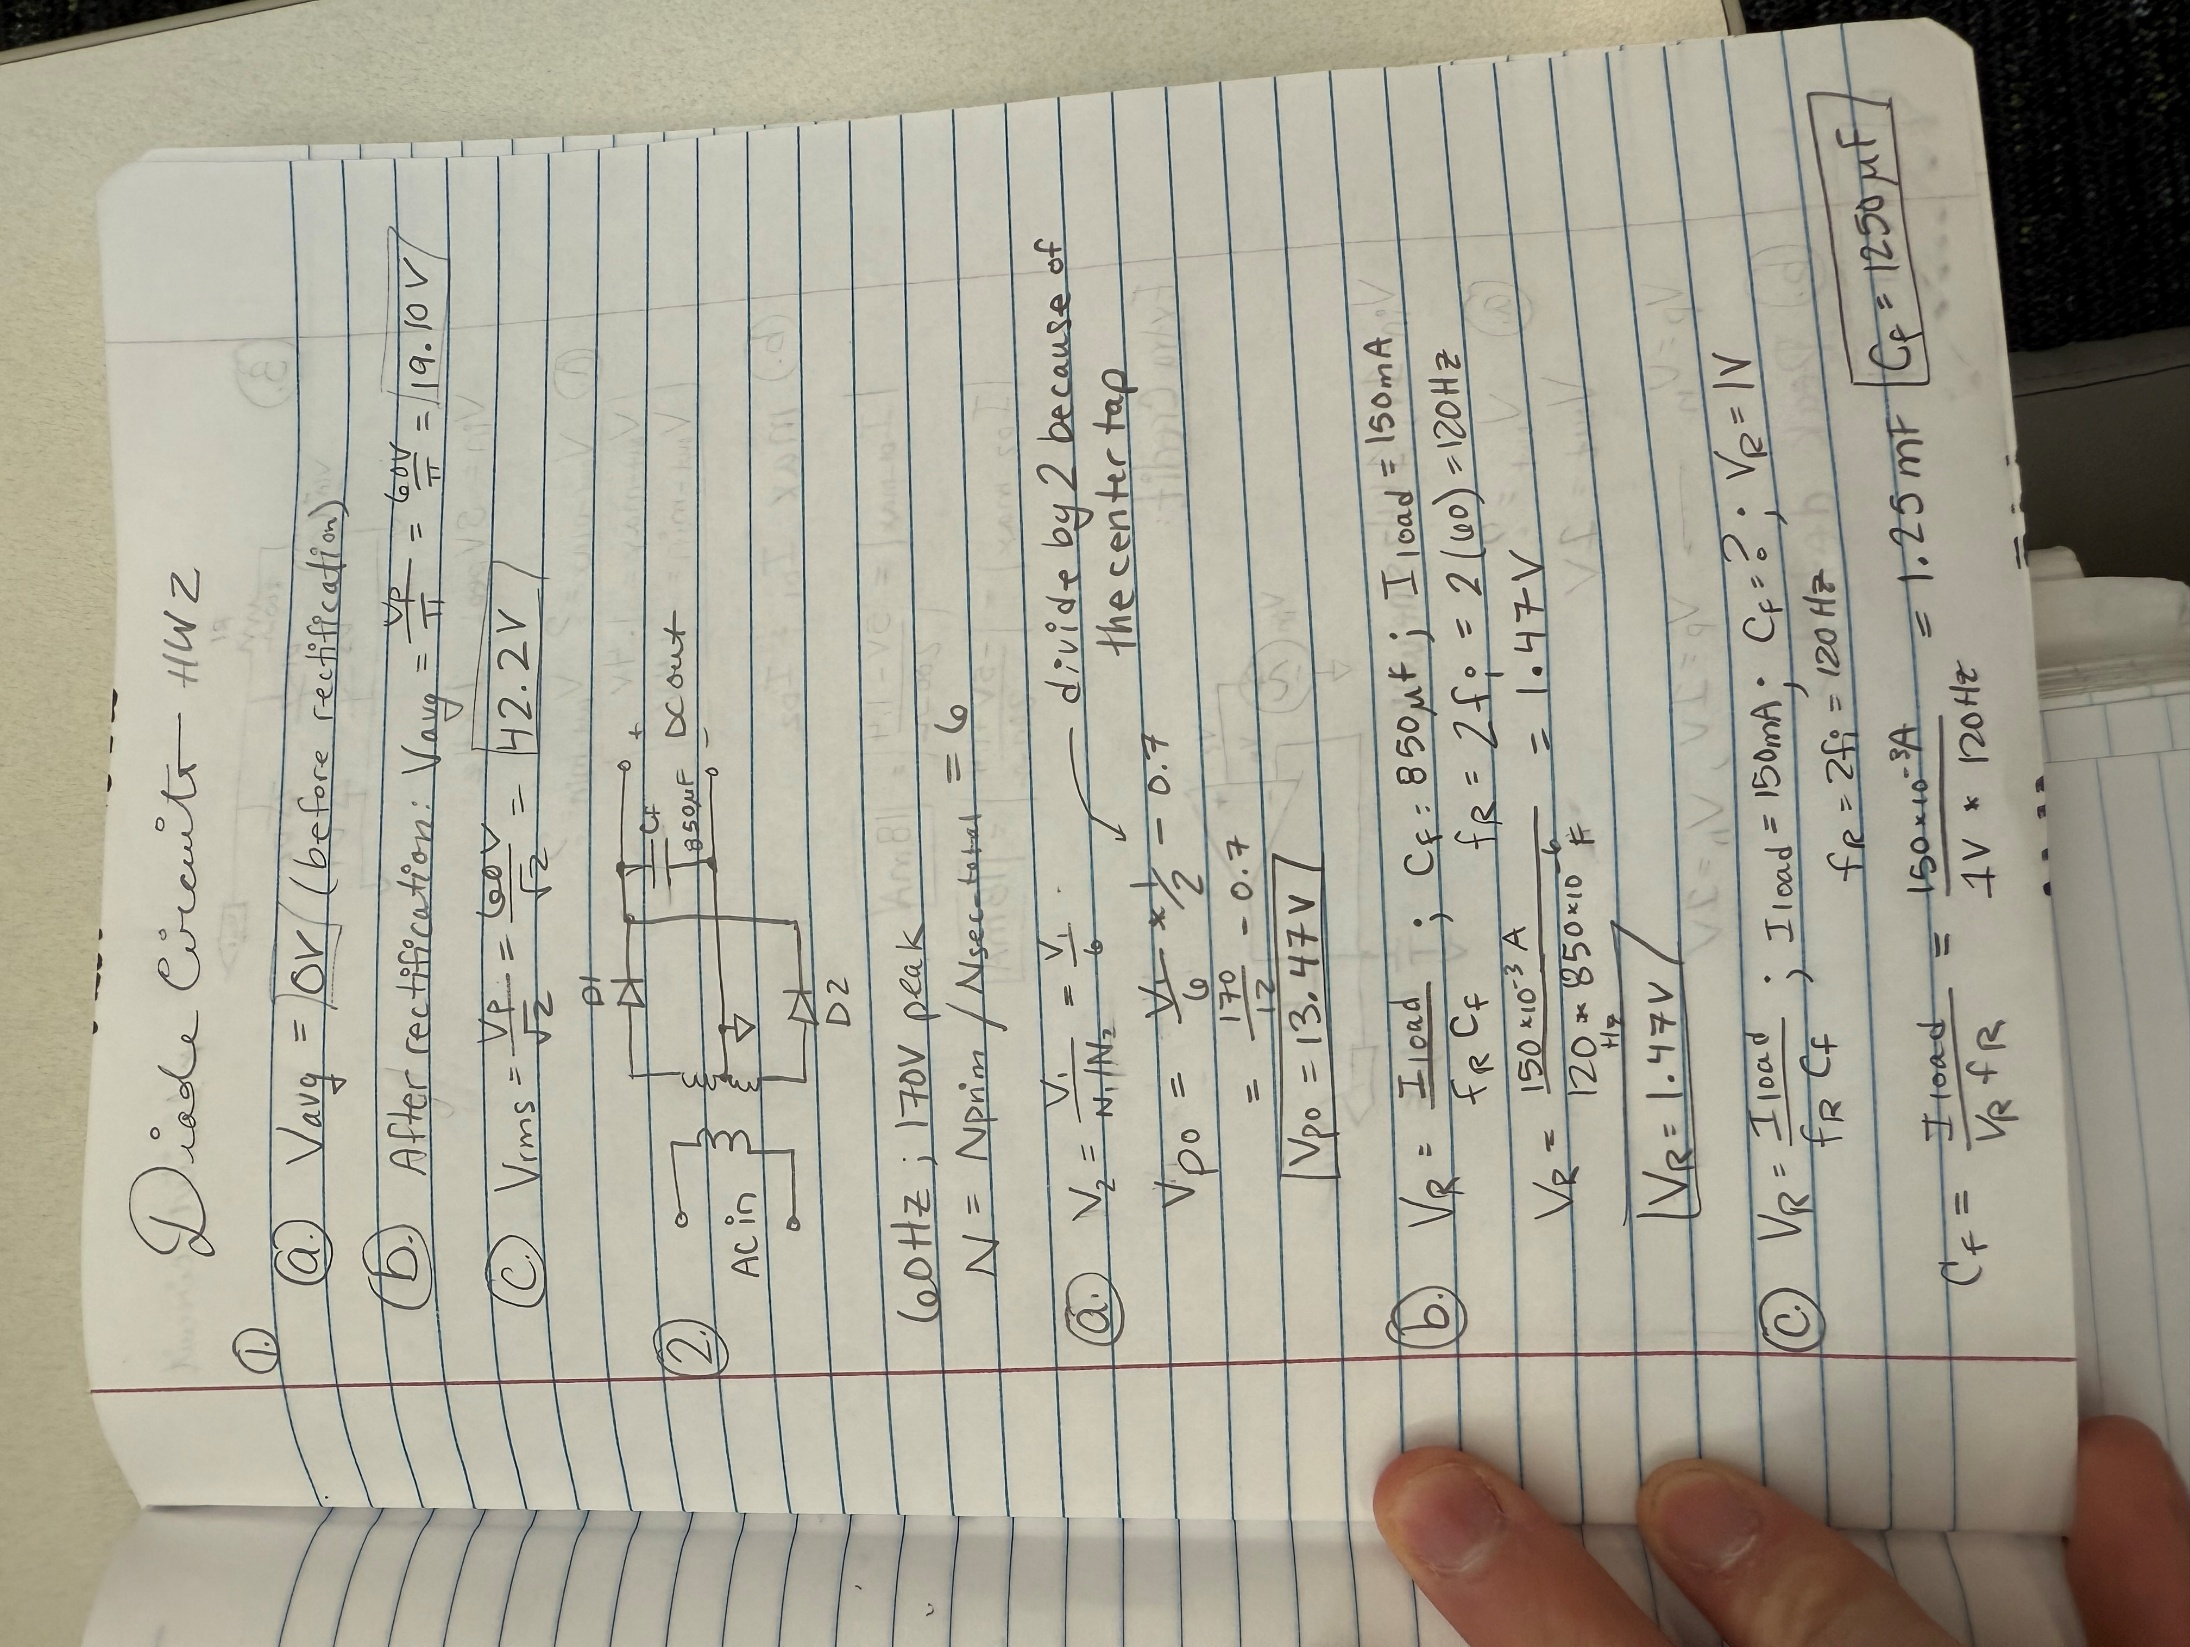 Diode Circuits - HW2
1.
a. Vavg = 0V (before rectification)
b. After rectification: Vavg = Vp/π = 60V/π = 19.10V
c. Vrms = Vp/√2 = 60V/√2 = 42.2V
2.
D1
+
CF
850µF
DC out
-
AC in
D2
60Hz ; 170V peak
N = Nprim / Nsec-total = 6
a. V2 = V1/(N1/N2) = V1/6
divide by 2 because of
the center tap
Vpo = V1/6 * 1/2 - 0.7
= 170/12 - 0.7
Vpo = 13.47V
b. VR = Iload/(fR CF) ; CF = 850µF ; Iload = 150mA
fR = 2fi = 2(60) = 120Hz
VR = 150×10⁻³A/(120Hz * 850×10⁻⁶F) = 1.47V
VR = 1.47V
c. VR = Iload/(fR CF) ; Iload = 150mA ; CF = ? ; VR = 1V
fR = 2fi = 120Hz
CF = Iload/(VR fR) = 150×10⁻³A/(1V * 120Hz) = 1.25mF
CF = 1250µF